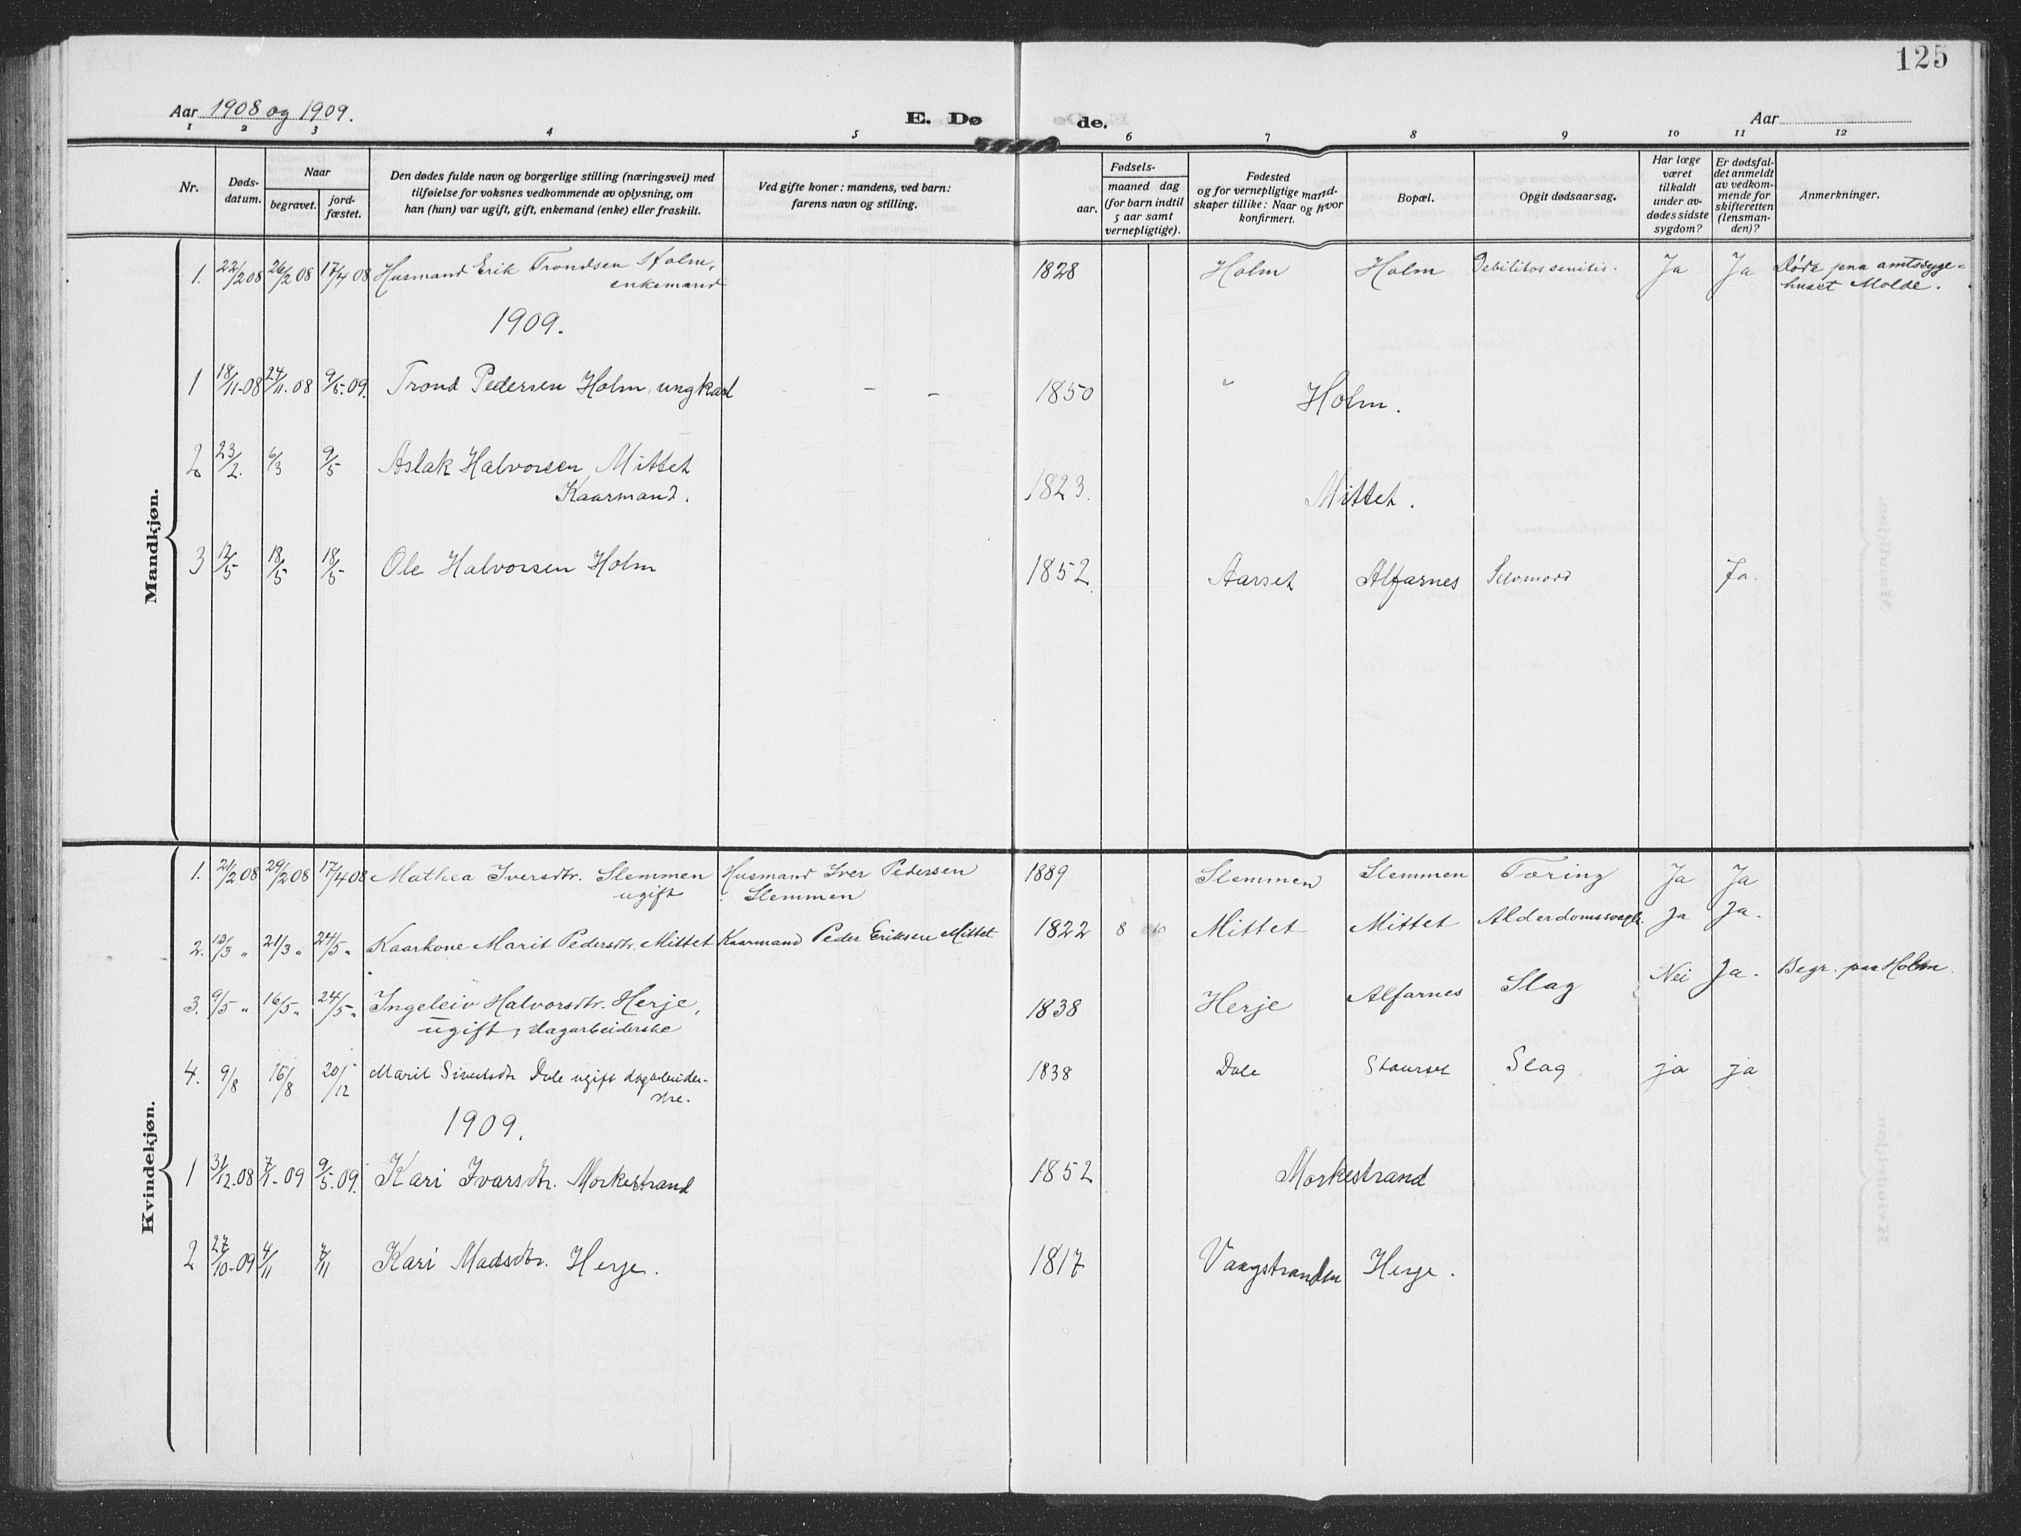 125
Aar 1908 og 1909.
E. Dø de.
Aar
1 2 3 4 5 6 7 8 9 10 11 12
Nr.
Døds-
datum.
Naar
begravet.
jord-
fæstet.
Den dødes fulde navn og borgerlige stilling (næringsvei) med
tilføielse for voksnes vedkommende av oplysning, om
han (hun) var ugift, gift, enkemand (enke) eller fraskilt.
Ved gifte koner: mandens, ved barn:
farens navn og stilling.
Fødsels-
aar.
maaned dag
(for barn indtil
5 aar samt
vernepligtige).
Fødested
og for vernepligtige mand-
skaper tillike: Naar og hvor
konfirmert.
Bopæl.
Opgit dødsaarsag.
Har læge
været
tilkaldt
under av-
dødes sidste
sygdom?
Er dødsfal-
det anmeldt
av vedkom-
mende for
skifteretten
(lensman-
den)?
Anmerkninger.
Mandkjøn.
1. 22/2 08 26/2 08 17/4 08 Husmand Erik Trondsen Holm, 1828 Holm Holm Debilitas senilis. Ja Ja Døde paa amtssyge-
enkemand huset Molde.
1909.
1 18/11-08 24/11-08 9/5-09. Trond Pedersen Holm, ungkarl - - 1850 " Holm.
2 23/2. 6/3 9/5 Aslak Halvorsen Mittet
Kaarmand. 1823. Mittet.
3 12/5 18/5 18/5 Ole Halvorsen Holm 1852 Aarset Alfarnes Selvmord Ja.
Kvindekjøn.
1. 21/2 08 29/2 08 17/4 08 Mathea Iversdtr. Slemmen Husmand Iver Pedersen 1889 Slemmen Slemmen Tæring Ja Ja
ugift Slemmen
2. 12/3 " 21/3 " 24/5 " Kaarkone Marit Pedersdtr. Mittet Kaarmand Peder Eriksen Mittet 1822 8 10 Mittet Mittet Alderdomssvagh. Ja Ja.
3. 9/5 " 16/5 " 24/5 " Ingeleiv Halvorsdtr. Herje, 1838 Herje Alfarnes Slag Nei Ja. Begr. paa Holm.
ugift, dagarbeiderske
4. 9/8 16/8 20/12 Marit Sivertsdtr Dale ugift dagarbeider-
ske. 1838 Dale Staurset Slag ja ja
1909.
1 31/12-08 7/1-09 9/5-09. Kari Ivarsdtr. Morkestrand 1852 Morkestrand
2 27/10-09 4/11 7/11 Kari Madsdtr. Herje. 1817 Vaagstranden Herje.